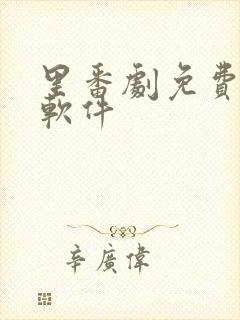 里番劇免費
軟件
辛廣偉